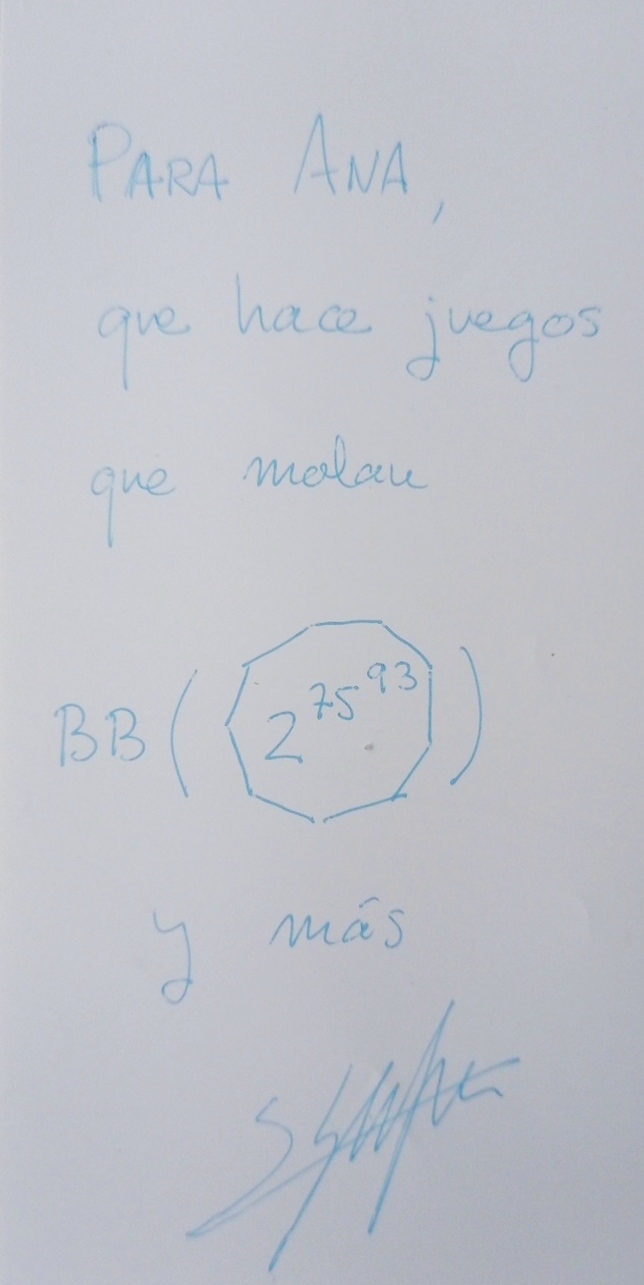 PARA ANA,
que hace juegos
que molan
BB(2^75^93)
y más